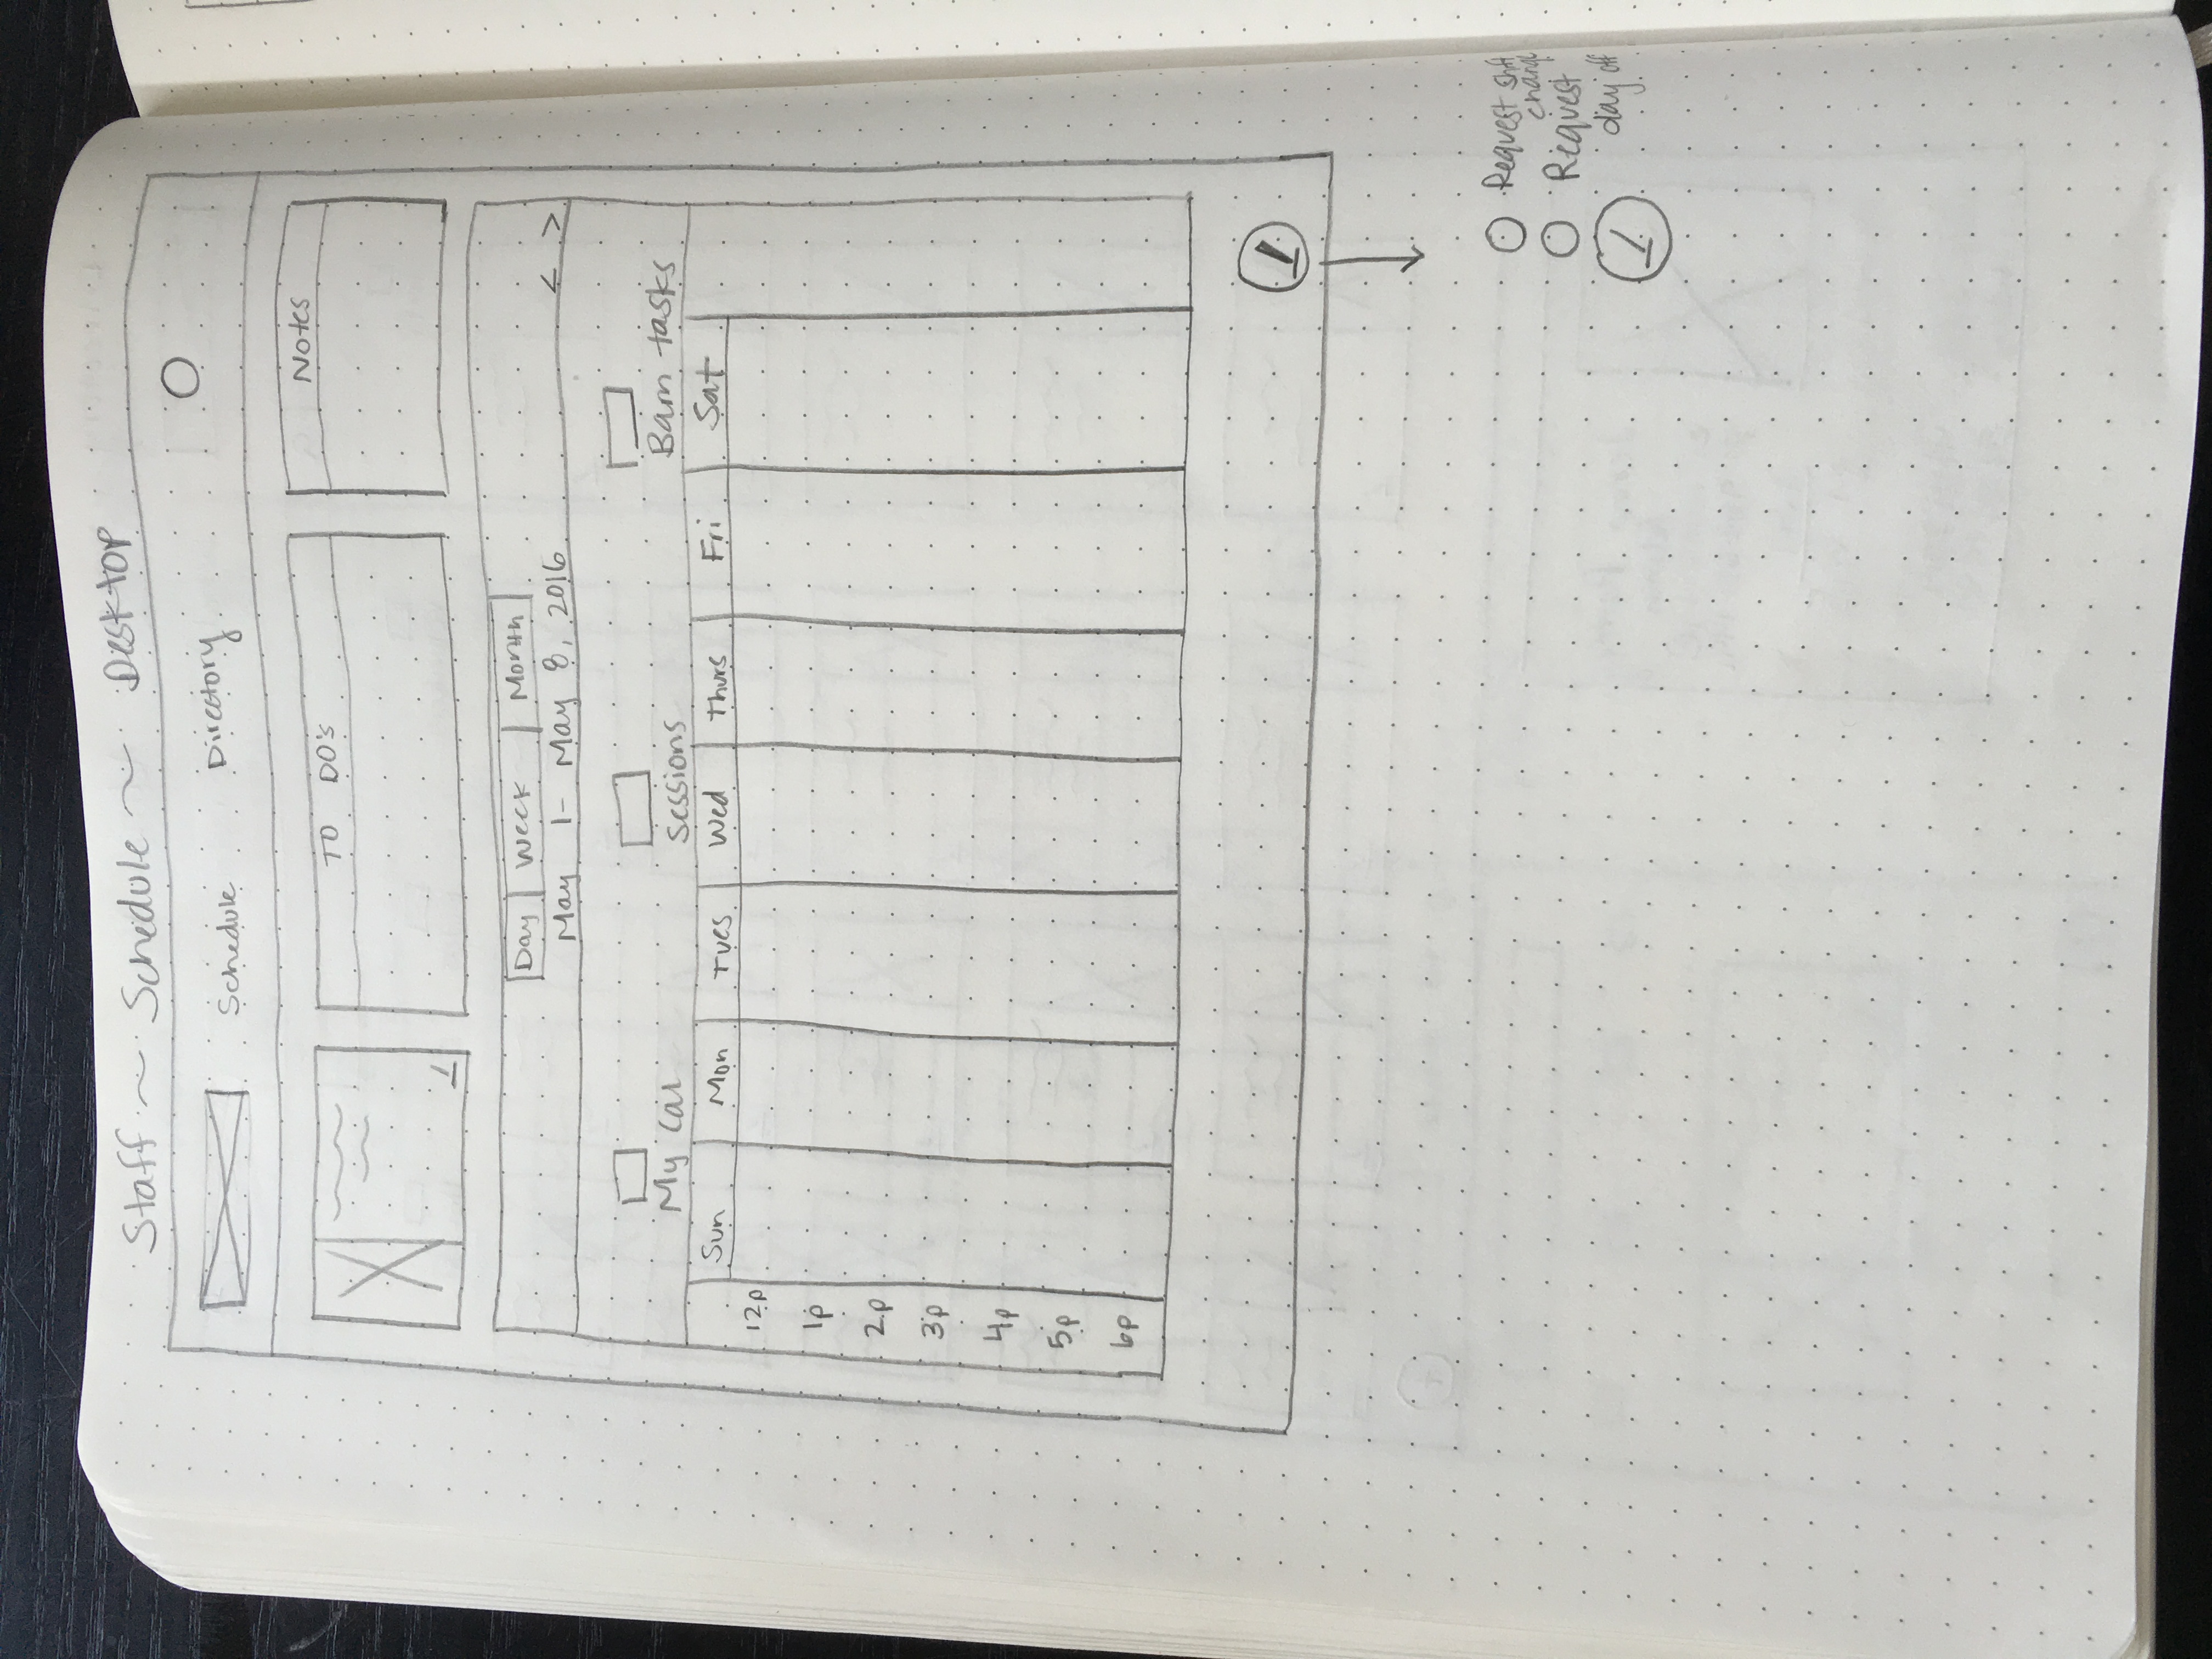 Staff ~ Schedule ~ Desktop
Schedule Directory
TO DO's
Notes
Day Week Month
May 1 - May 8, 2016 < >
My Cal Sessions Barn tasks
Sun Mon Tues Wed Thurs Fri Sat
12p
1p
2p
3p
4p
5p
6p
Request shift
change
Request
day off